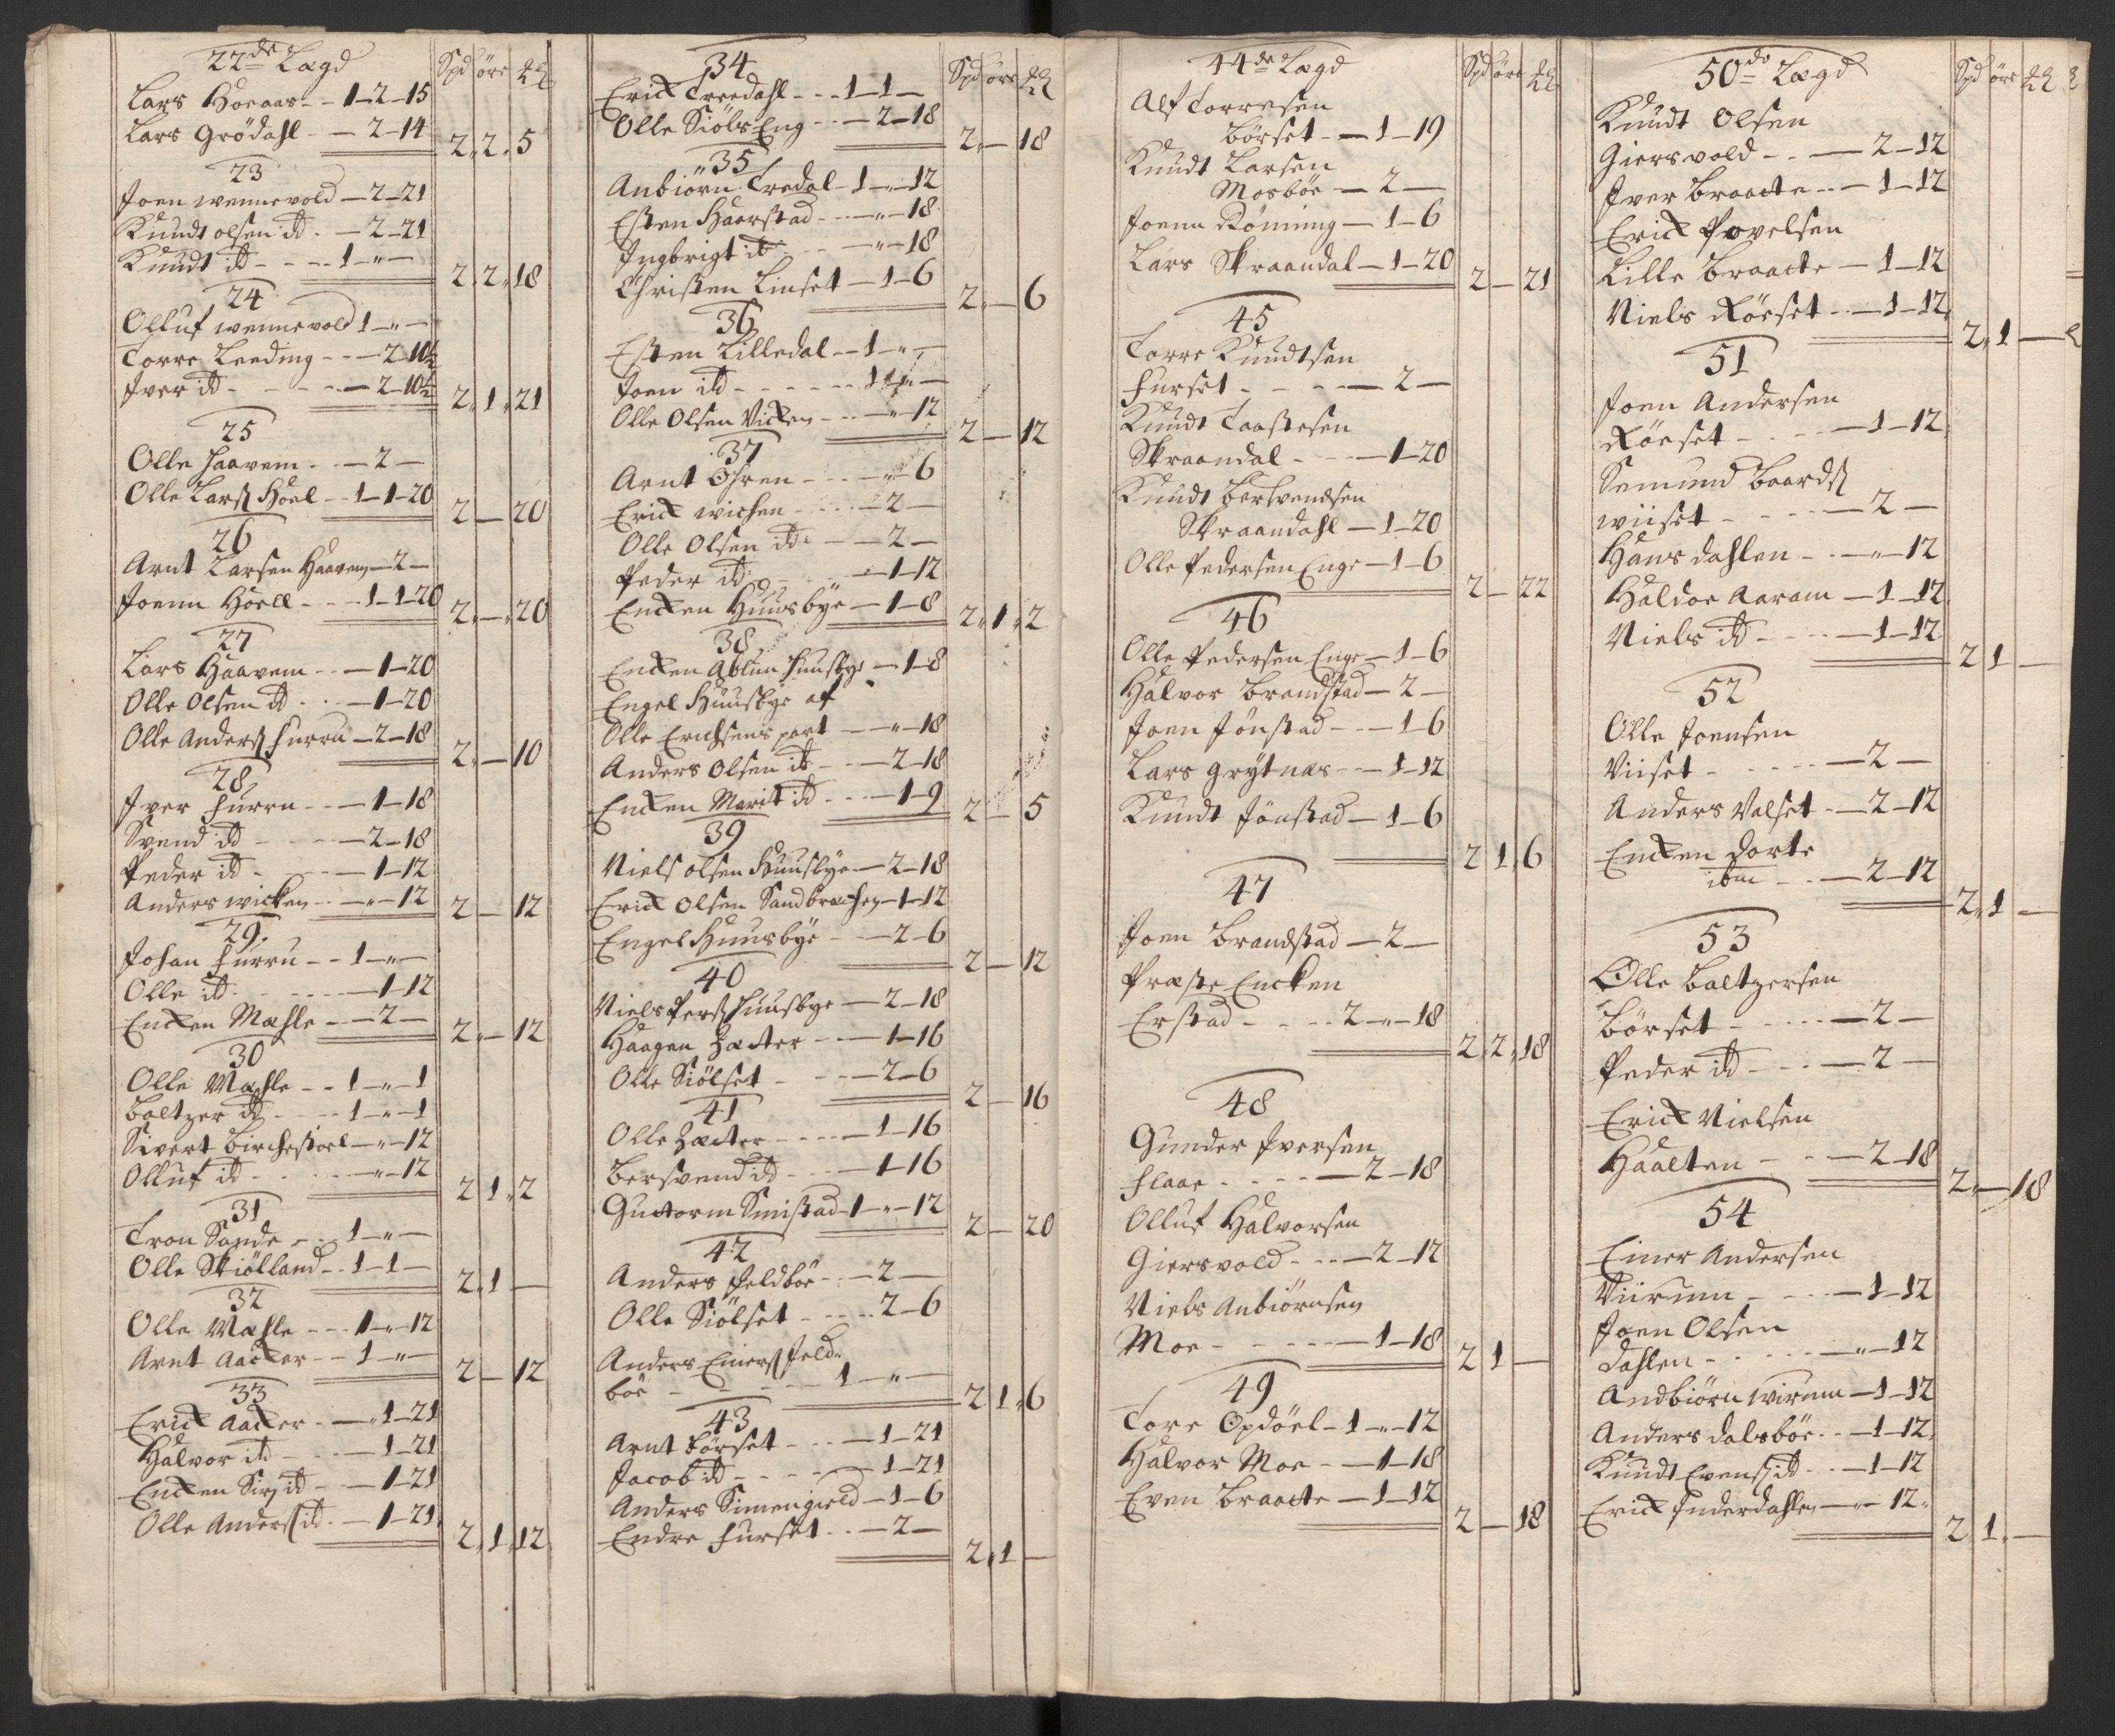 22de Lægd Spd öre
Lars Hoeaas - - 1-2-15
Lars Grödahl - - 2-14
2. 2. 5
23
Joen wennevold - 2-21
Knudt olsen id - 2-21
Knudt id - - - 1-"-
2. 2. 18
24
Olluf wennevold 1-"-
Torre Leeding - - 2-10½
Iver id - - - - 2-10½
2. 1. 21
25
Olle Haavem - - 2 -
Olle Larss Hoel - 1-1-20
2 - 20
26
Arnt Larsen Haavem - 2 -
Joenn Höell - - - 1-1-20
2 - 20
27
Lars Haavem - - 1-20
Olle Olsen id - - 1-20
Olle Anderss Furru - 2-18
2 - 10
28
Iver Furru - - - 1-18
Svend id - - - 2-18
Peder id - - - 1-12
Anders wicken - - "-12
2 - 12
29
Johan Furru - - 1-"-
Olle id - - - - 1-12
Encken Mæhle - - 2 -
2 - 12
30
Olle Mæhle - - 1-"-1
Baltzer id - - - 1-"-1
Sivert Bircheßoel - "-12
Olluf id - - - - "-12
2 1. 2
31
Tron Sande - - 1-"-
Olle Skiölland - - 1-1-
2. 1 -
32
Olle Mæhle - - - 1-"-12
Arnt Aacker - - 1-"-
2 - 12
33
Erick Aacker - - "1-21
Halvor id - - - 1-21
Encken Siri id - - 1-21
Olle Anderss id - - 1-21
2. 1. 12
34
Spd öre
Erick Treedahl - - - 1-1-
Olle Siöls Eng - - - 2-18
2. - 18
35
Anbiörn Tredal - 1-"-12
Esten Haarstad - - - "-18
Ingbrigt id - - - "-18
Christen Linset - 1-6
2. - 6
36
Esten Lilledal - - 1-"-
Joen id - - - - - 1-"-
Olle Olsen Vicken - - "-12
2 - 12
37
Arnt Öhren - - - "-6
Erick wichen - - - 2 -
Olle Olsen id - - 2 -
Peder id - - - - 1-12
Encken Huusbye - 1-8
2. 1. 2
38
Encken Ablun Huusbye - 1-8
Engel Huusbye af
Olle Erichsens part - "-18
Anders Olsen id - - 2-18
Encken Marit id - - - 1-9
2 - 5
39
Niels olsen Huusbye - 2-18
Erick Olsen Sandbrachen - 1-12
Engel Huusbye - - 2-6
2 - 12
40
Niels Perss Huusbye - 2-18
Haagen Zætter - - - 1-16
Olle Siölset - - - 2-6
2 - 16
41
Olle Zætter - - - - 1-16
Bersvend id - - - 1-16
Guttorm Smistad - 1-"-12
2 - 20
42
Anders Feldböe - - 2 -
Olle Siölset - - - - 2-6
Anders Einerss Feld-
böe - - - - - 1-"-
2 1. 6
43
Arnt Börset - - - 1-21
Jacob id - - - - 1-21
Anders Simengield - 1-6
Endre Furset - - 2 -
2. 1 -
44de Lægd Spd öre
Alf Torresen
Börset - - 1-19
Knudt Larsen
Mosböe - 2 -
Joenn Röning - 1-6
Lars Skraandal - 1-20
2 - 21
45
Torre Knudtsen
Furset - - - - 2 -
Knudt Taaßesen
Skraandal - - - 1-20
Knudt Bersvendsen
Skraandahl - 1-20
Olle Pedersen Enge - 1-6
2 - 22
46
Olle Pedersen Enge - 1-6
Halvor Brandstad - 2 -
Joen Jönstad - - 1-6
Lars Grytnæs - - 1-12
Knudt Jönstad - 1-6
2 1. 6
47
Joen Brandstad - 2 -
Præste Encken
Erstad - - - - 2-"-18
2. 2. 18
48
Gunder Iversen
Flaae - - - - 2-18
Olluf Halvorsen
Giersvold - - - 2-12
Niels Anbiörnsen
Moe - - - - - 1-18
2 1 -
49
Tore Opdöel - 1-"-12
Halvor Moe - - 1-18
Even Braatte - 1-12
2 - 18
50de Lægd Spd öre
Knudt Olsen
Giersvold - - - 2-12
Iver Braatte - - 1-12
Erick Povelsen
Lille Braatte - 1-12
Niels Röeset - - 1-12
2. 1 -
51
Joen Andersen
Röeset - - - - 1-12
Semund Baardss
wiiset - - - - 2 -
Hans Dahlen - - "-12
Haldor Aaram - 1-12
Niels id - - - - 1-12
2 1 -
52
Olle Joensen
Viiset - - - - 2 -
Anders Valset - - 2-12
Encken Dorte
ibm - - 2-12
2. 1 -
53
Olle Baltzersen
Börset - - - - - 2 -
Peder id - - - 2 -
Erick Nielsen
Haalten - - - 2-18
2. - 18
54
Einer Andersen
Viirum - - - - 1-12
Joen Olsen
Dahlen - - - - "-12
Andbiörn wirum - 1-12
Anders Dalsböe - - 1-12
Knudt Evenss id - - 1-12
Erick Inderdahlen - "-12
2. 1. -